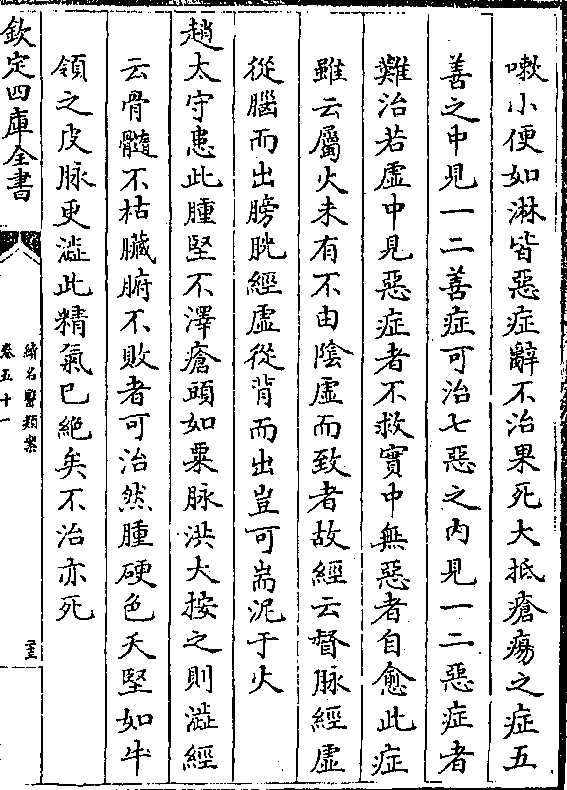 嗽小便如淋皆惡症辭不治果死大抵瘡瘍之症五
善之中見一二善症可治七惡之内見一二惡症者
難治若虚中見惡症者不救實中無惡者自愈此症
雖云屬火未有不由陰虚而致者故經云督脉經虚
從腦而出膀胱經虚從背而出豈可耑泥于火
趙太守患此腫堅不澤瘡頭如粟脉洪大按之則澁經
云骨髓不枯臟腑不敗者可治然腫硬色夭堅如牛
領之皮脉更澁此精氣已絶矣不治亦死
欽定四庫全書
續名醫類案
卷五十一